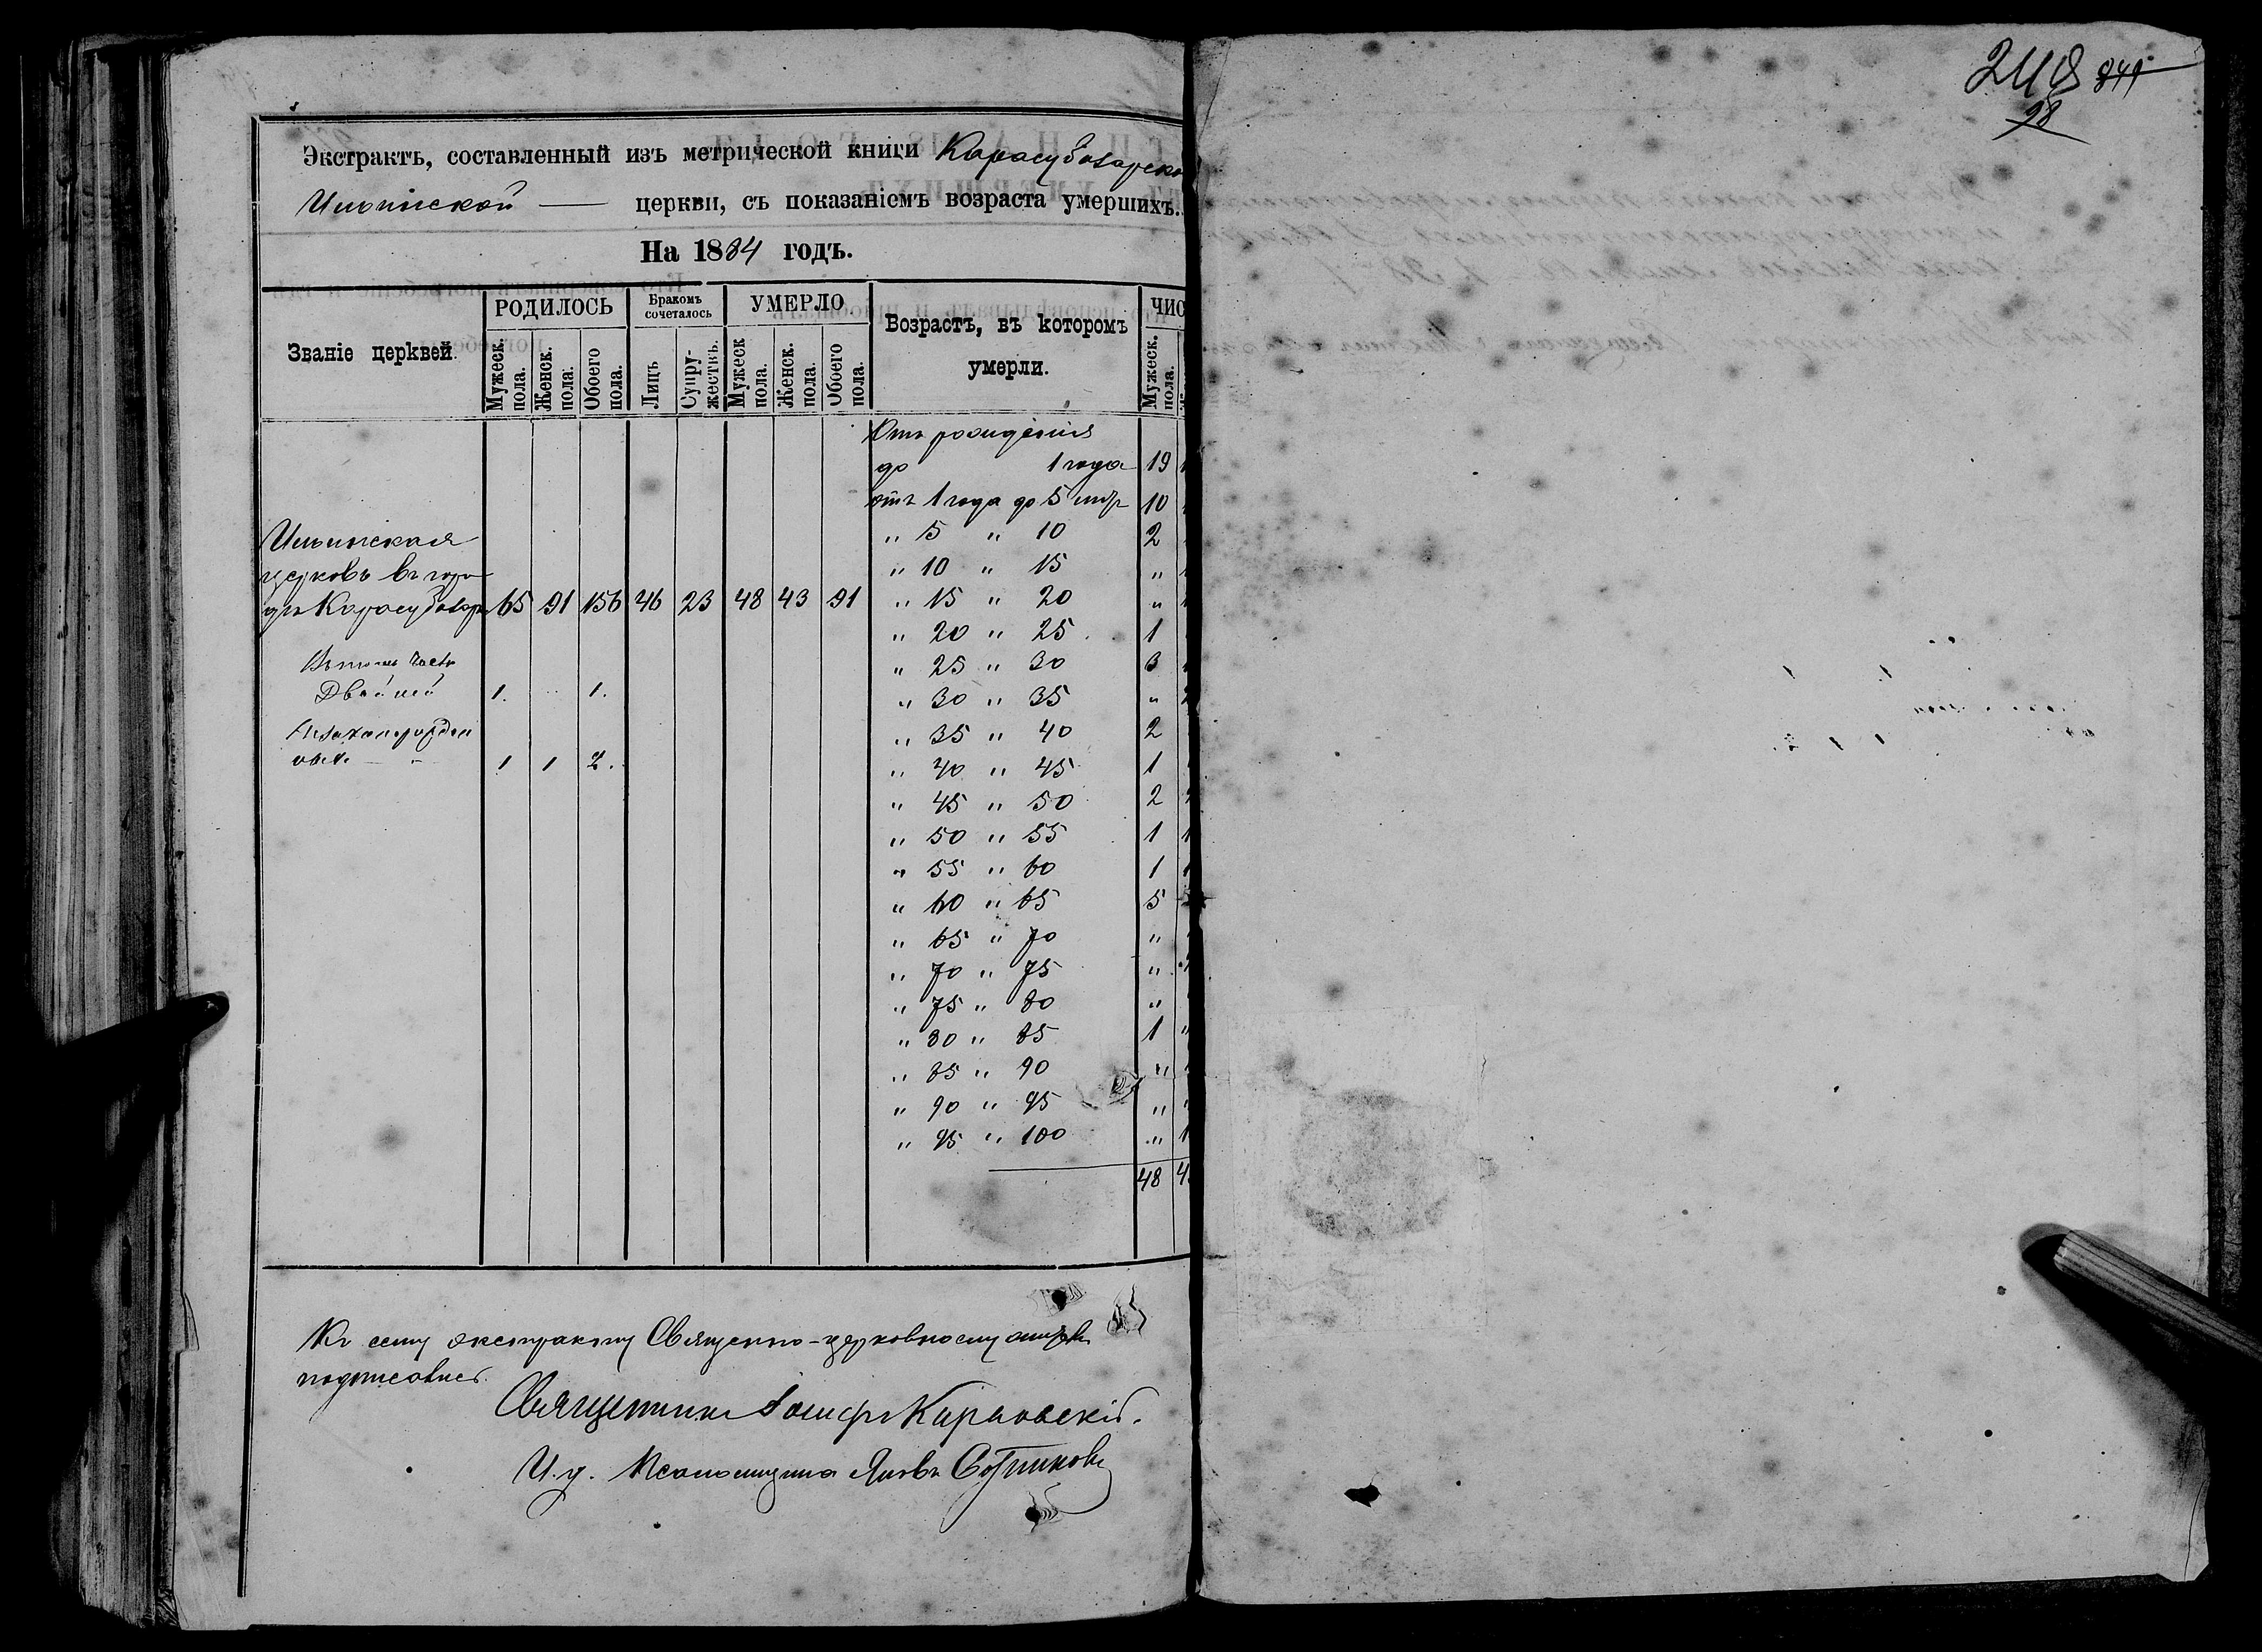 248 841
98
Экстрактъ, составленный изъ метрической книги Карасубазарско
Ильинской — церкви, съ показаніемъ возраста умершихъ.
На 1884 годъ.
Званіе церквей.
РОДИЛОСЬ
Мужеск. пола.
Женск. пола.
Обоего пола.
Бракомъ сочеталось
Лицъ
Супружествъ.
УМЕРЛО
Мужеск пола.
Женск. пола.
Обоего пола.
Возрастъ, въ которомъ
умерли.
ЧИС
Мужеск. пола.
Отъ рожденія
до 1 года 19
отъ 1 года до 5 лѣтъ 10
Ильинская " 5 " 10 2
церковь въ горо- " 10 " 15 "
дѣ Карасубазарѣ 65 91 156 46 23 48 43 91 " 15 " 20 "
" 20 " 25 1
Въ томъ числѣ " 25 " 30 3
Двойней 1. " 1. " 30 " 35 "
Незаконорожден " 35 " 40 2
ныхъ — " 1 1 2. " 40 " 45 1
" 45 " 50 2
" 50 " 55 1
" 55 " 60 1
" 60 " 65 5
" 65 " 70 "
" 70 " 75 "
" 75 " 80 "
" 80 " 85 1
" 85 " 90 "
" 90 " 95 "
" 95 " 100 "
48
Къ сему экстракту Священно-церковнослужители
подписались.
Священникъ Іосифъ
И. д. Псаломщика Яковъ Сотниковъ